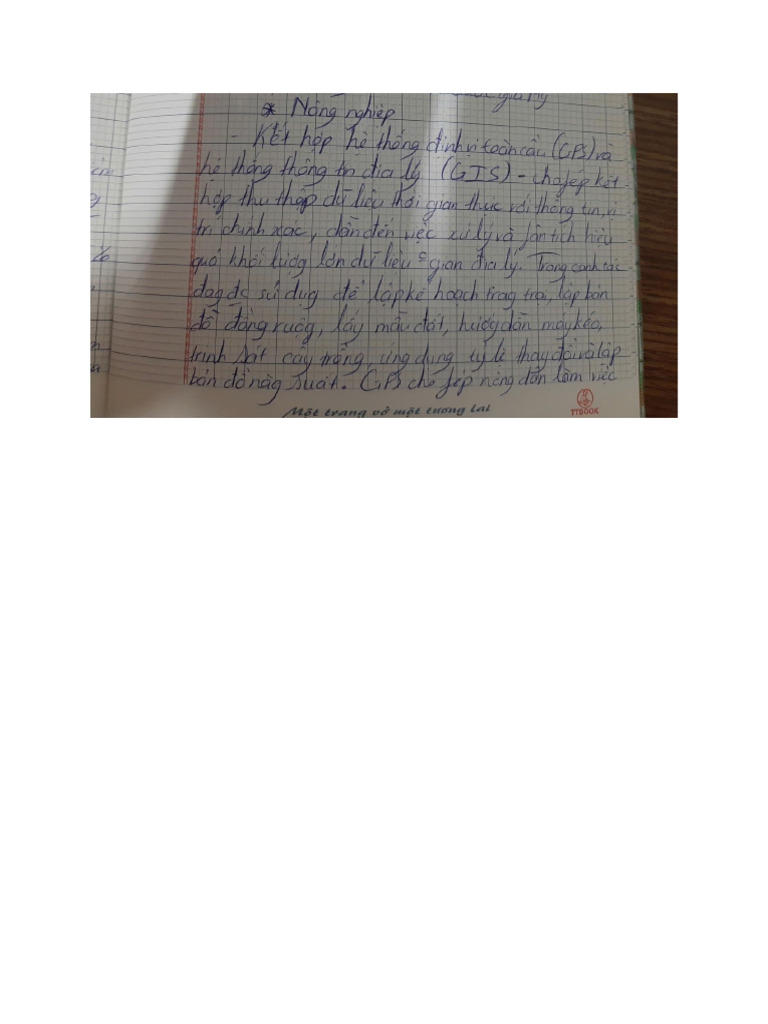 * Nông nghiệp
- Kết hợp hệ thống định vị toàn cầu (GPS) và
hệ thống thông tin địa lý (GIS) - cho fép kết
hợp thu thập dữ liệu thời gian thực với thông tin vị
trí chính xác, dẫn đến việc xử lý và fân tích hiệu
quả khối lượg lớn dữ liệu gian địa lý. Trong canh tác
đag đc sử dụg để lập kế hoạch trag trại, lập bản
đồ đồng ruộg, lấy mẫu đất, hướg dẫn máy kéo,
trinh sát cây trồng, ứng dụng tỷ lệ thay đổi và lập
bản đồ năg suất. GPS cho fép nông dân làm việc
Một trang vở một tương lai
TTBOOK